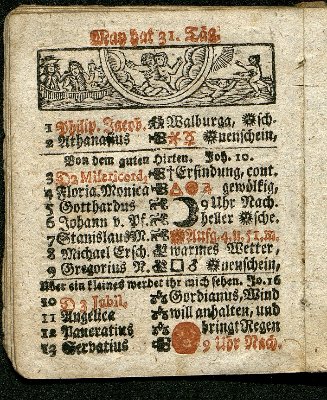 May hat 31. Täg.
1 Philip. Jacob. Walburga, sch.
2 Athanasius uenschein,
Von dem guten Hirten. Joh. 10.
3 D2 Misericord. † Erfindung, cont.
4 Floria. Monica gewölkig,
5 Gotthardus 9 Uhr Nach.
6 Johann v. Pf. heller sche.
7 Stanislaus M. Aufg. 4. u. 51. m.
8 Michael Ersch. warmes Wetter,
9 Gregorius N. □ ♂ uenschein,
Uber ein kleines werdet ihr mich sehen. Jo. 16
10 D 3 Jubil. Gordianus, Wind
11 Angelica will anhalten, und
12 Pancratius bringt Regen
13 Servatius 9 Uhr Nach.